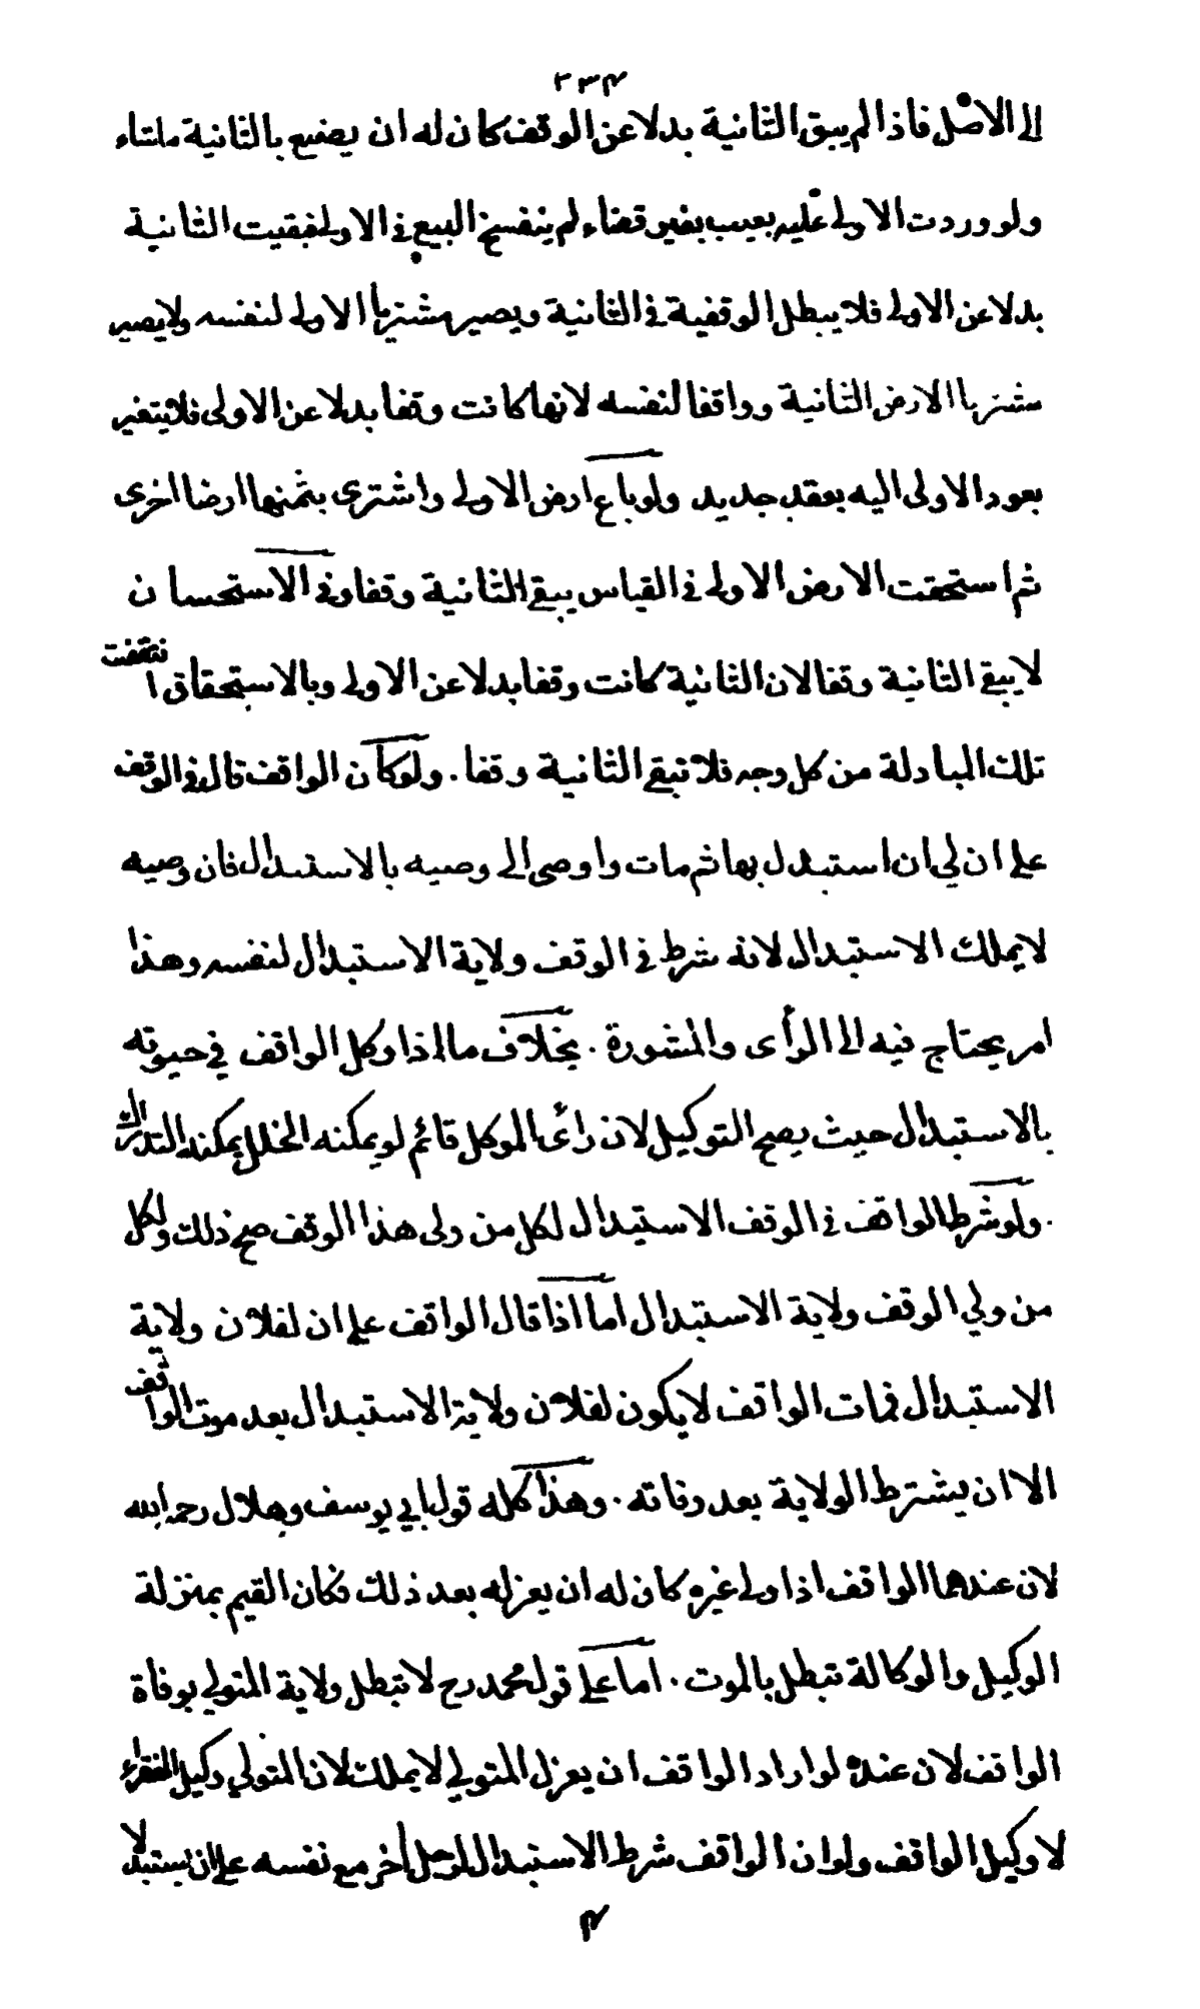 ٢٣٤
الى الاصل فاذا لم يبق الثانية بدلا عن الوقف كان له ان يصنع بالثانية ماشاء
ولو وردت الاولى عليه بعيب بغير قضاء لم ينفسخ البيع فى الاولى فبقيت الثانية
بدلا عن الاولى فلا يبطل الوقفية فى الثانية ويصير مشتريا الاولى لنفسه ولا يصير
مشتريا الارض الثانية وواقفا لنفسه لانها كانت وقفا بدلا عن الاولى فلا يتغير
بعود الاولى اليه بعقد جديد ولو باع ارض الاولى واشترى بثمنها ارضا اخرى
ثم استحقت الارض الاولى فى القياس يبقى الثانية وقفا وفى الاستحسان
لا يبقى الثانية وقفا لان الثانية كانت وقفا بدلا عن الاولى وبالاستحقاق انتقضت
تلك المبادلة من كل وجه فلا تبقى الثانية وقفا . ولو كان الواقف قال فى الوقف
على ان لي ان استبدل بها ثم مات واوصى الى وصيه بالاستبدال فان وصيه
لا يملك الاستبدال لانه شرط فى الوقف ولاية الاستبدال لنفسه وهذا
امر يحتاج فيه الى الرأى والمشورة . بخلاف ما اذا وكل الواقف في حيوته
بالاستبدال حيث يصح التوكيل لان رأى الموكل قائم لو يمكنه الخلل يمكنه التدارك
. ولو شرط الواقف فى الوقف الاستبدال لكل من ولى هذا الوقف صح ذلك ولكل
من ولي الوقف ولاية الاستبدال اما اذا قال الواقف على ان لفلان ولاية
الاستبدال فمات الواقف لا يكون لفلان ولاية الاستبدال بعد موت الواقف
الا ان يشترط الولاية بعد وفاته . وهذا كله قول ابي يوسف وهلال رحمه الله
لان عندهما الواقف اذا ولى غيره كان له ان يعزله بعد ذلك فكان القيم بمنزلة
الوكيل والوكالة تبطل بالموت . اما على قول محمد رح لا تبطل ولاية المتولي بوفاة
الواقف لان عنده لو اراد الواقف ان يعزل المتولي لا يملك لان المتولي وكيل الفقراء
لا وكيل الواقف ولو ان الواقف شرط الاستبدال لرجل أخر مع نفسه على ان يستبدلا